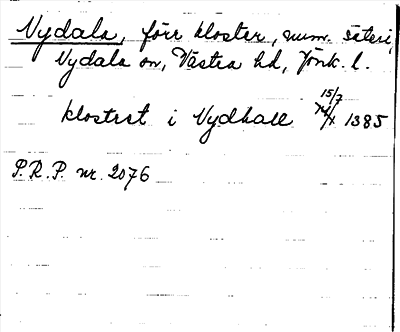 Nydala, förr kloster, num. säteri,
Nydala sn, Västra hd, Jönk. l.
klostret i Nydhale 15/7 1385
P.R.P. nr. 2076